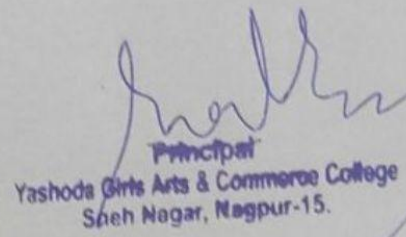 Principal
Yashoda Girls Arts & Commerce College
Sneh Nagar, Nagpur-15.